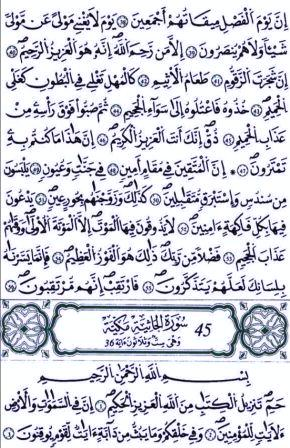 إِنَّ يَوْمَ الْفَصْلِ مِيقَاتُهُمْ أَجْمَعِينَ يَوْمَ لَا يُغْنِي مَوْلًى عَن مَّوْلًى
شَيْئاً وَلَا هُمْ يُنصَرُونَ إِلَّا مَن رَّحِمَ اللَّهُ إِنَّهُ هُوَ الْعَزِيزُ الرَّحِيمُ
إِنَّ شَجَرَتَ الزَّقُّومِ طَعَامُ الْأَثِيمِ كَالْمُهْلِ تَغْلِي فِي الْبُطُونِ كَغَلْيِ
الْحَمِيمِ خُذُوهُ فَاعْتُلُوهُ إِلَىٰ سَوَاءِ الْجَحِيمِ ثُمَّ صُبُّوا فَوْقَ رَأْسِهِ مِنْ
عَذَابِ الْحَمِيمِ ذُقْ إِنَّكَ أَنتَ الْعَزِيزُ الْكَرِيمُ إِنَّ هَٰذَا مَا كُنتُم بِهِ
تَمْتَرُونَ إِنَّ الْمُتَّقِينَ فِي مُقَامٍ أَمِينٍ فِي جَنَّٰتٍ وَعُيُونٍ يَلْبَسُونَ
مِن سُندُسٍ وَإِسْتَبْرَقٍ مُّتَقَٰبِلِينَ كَذَٰلِكَ وَزَوَّجْنَٰهُم بِحُورٍ عِينٍ يَدْعُونَ
فِيهَا بِكُلِّ فَٰكِهَةٍ ءَامِنِينَ لَا يَذُوقُونَ فِيهَا الْمَوْتَ إِلَّا الْمَوْتَةَ الْأُولَىٰ وَوَقَىٰهُمْ
عَذَابَ الْجَحِيمِ فَضْلًا مِّن رَّبِّكَ ذَٰلِكَ هُوَ الْفَوْزُ الْعَظِيمُ فَإِنَّمَا يَسَّرْنَٰهُ
بِلِسَانِكَ لَعَلَّهُمْ يَتَذَكَّرُونَ فَارْتَقِبْ إِنَّهُم مُّرْتَقِبُونَ
45 سُورَةُ الْجَاثِيَةِ مَكِّيَّةٌ
وَهْيَ سِتٌّ وَثَلَاثُونَ ءَايَةً 36
بِسْمِ اللَّهِ الرَّحْمَٰنِ الرَّحِيمِ
حمٓ تَنزِيلُ الْكِتَٰبِ مِنَ اللَّهِ الْعَزِيزِ الْحَكِيمِ إِنَّ فِي السَّمَٰوَٰتِ وَالْأَرْضِ
لَأَيَٰتٍ لِّلْمُؤْمِنِينَ وَفِي خَلْقِكُمْ وَمَا يَبُثُّ مِن دَابَّةٍ ءَايَٰتٌ لِّقَوْمٍ يُوقِنُونَ